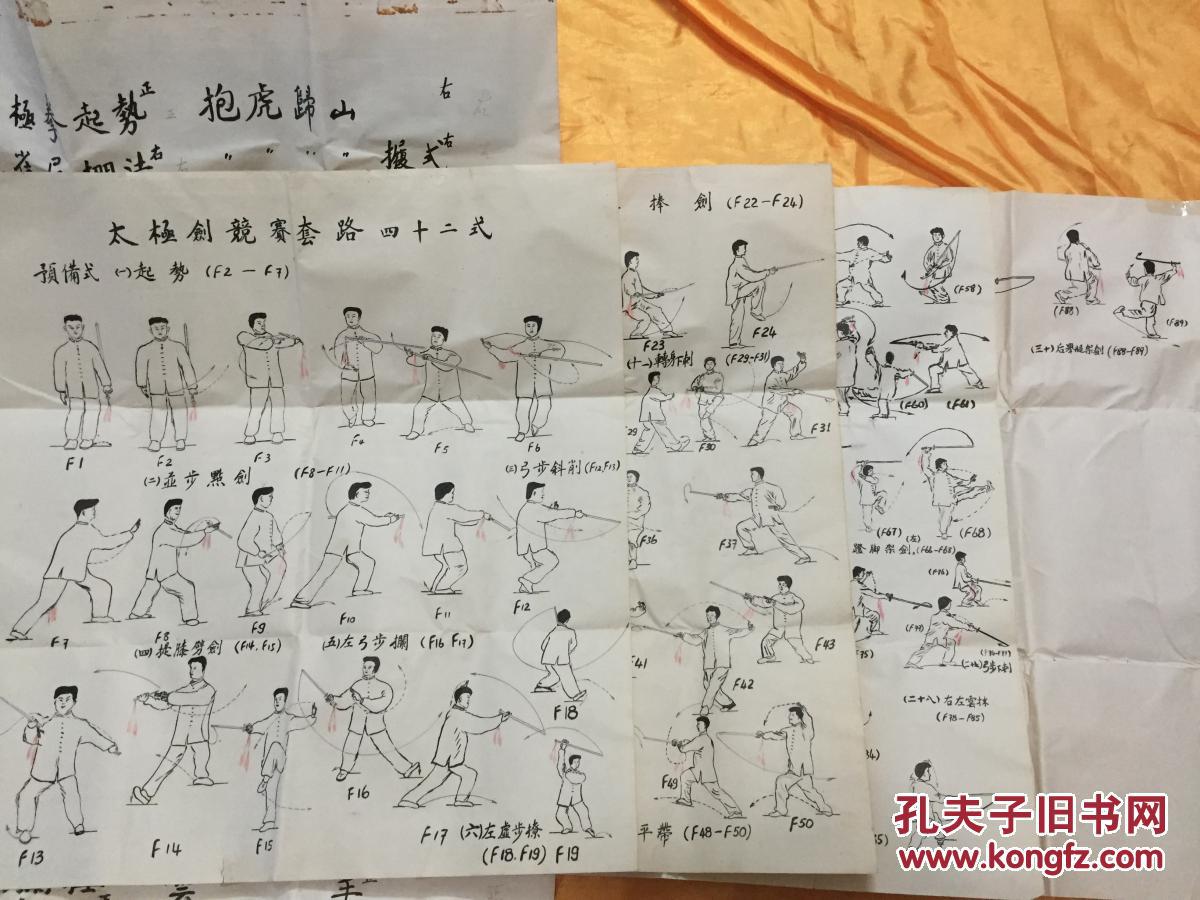 極拳起勢正 抱虎歸山 右
〃 〃 〃 〃 攦式右
太極劍競賽套路四十二式
預備式 (一)起勢 (F2-F7)
F1 F2 F3 F4 F5 F6
(二)並步點劍 (F8-F11) (三)弓步斜削(F12,F13)
F7 F8 F9 F10 F11 F12
(四)提膝劈劍 (F14.F15) (五)左弓步攔 (F16 F17)
F13 F14 F15 F16 F17 F18
(六)左虛步撩
(F18.F19) F19
捧劍 (F22-F24)
F23 F24
(十一)轉身下刺 (F29-F31)
F30 F31
F36 F37
F42 F43
F49 F50
平帶 (F48-F50)
(F58)
(F60) (F61)
(F67) (左) (F68)
蹬脚架劍.(F66-F68)
(F76)
(二十八)右左雲抹
(F78-F85)
(F88) (F89)
(三十)后舉腿架劍 (F88-F89)
孔夫子旧书网
www.kongfz.com